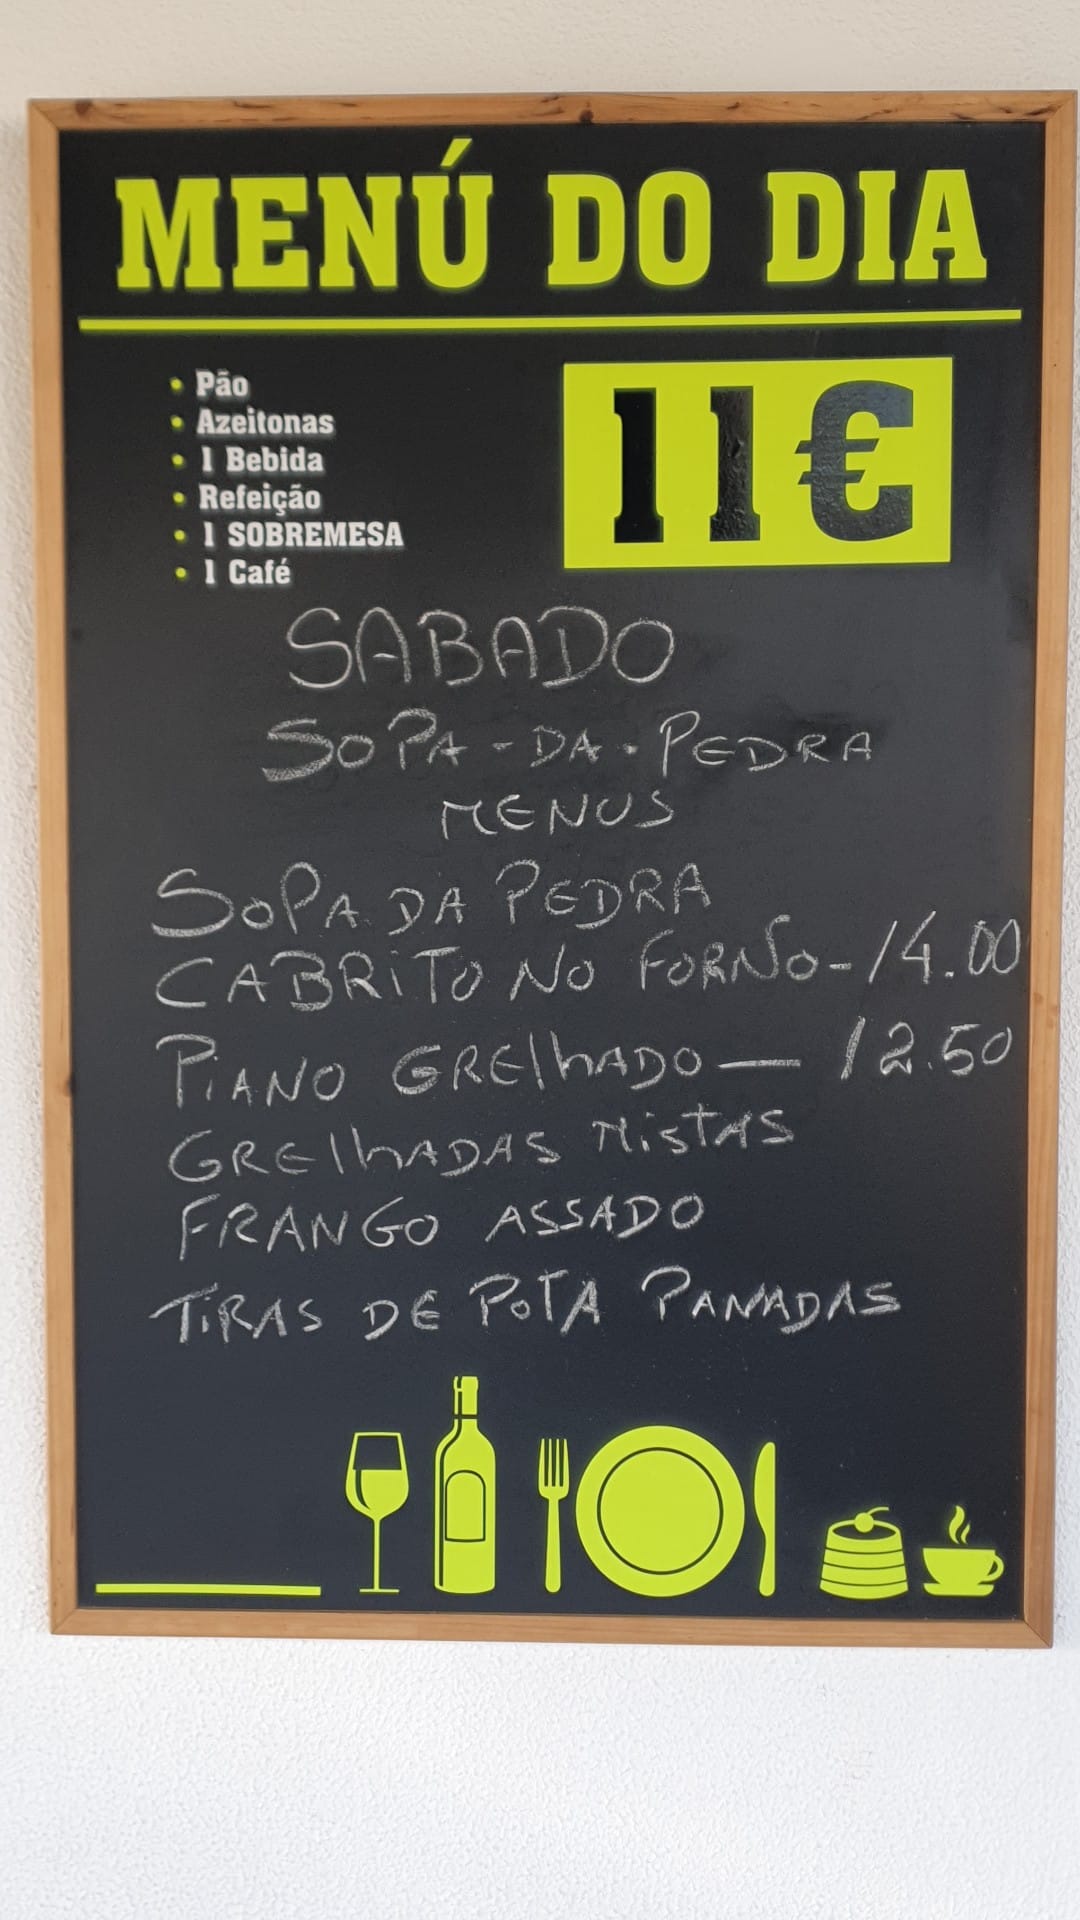 MENÚ DO DIA
• Pão
• Azeitonas
• 1 Bebida
• Refeição
• 1 SOBREMESA
• 1 Café
11€
SABADO
SOPA-DA-PEDRA
MENUS
SOPA DA PEDRA
CABRITO NO FORNO-14.00
PiANO GRElhADO— 12.50
GRElhADAS MiSTAS
FRANGO ASSADO
TiRAS DE POTA PANADAS